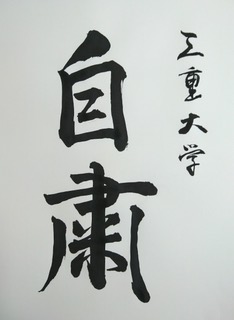 三重大学
自粛